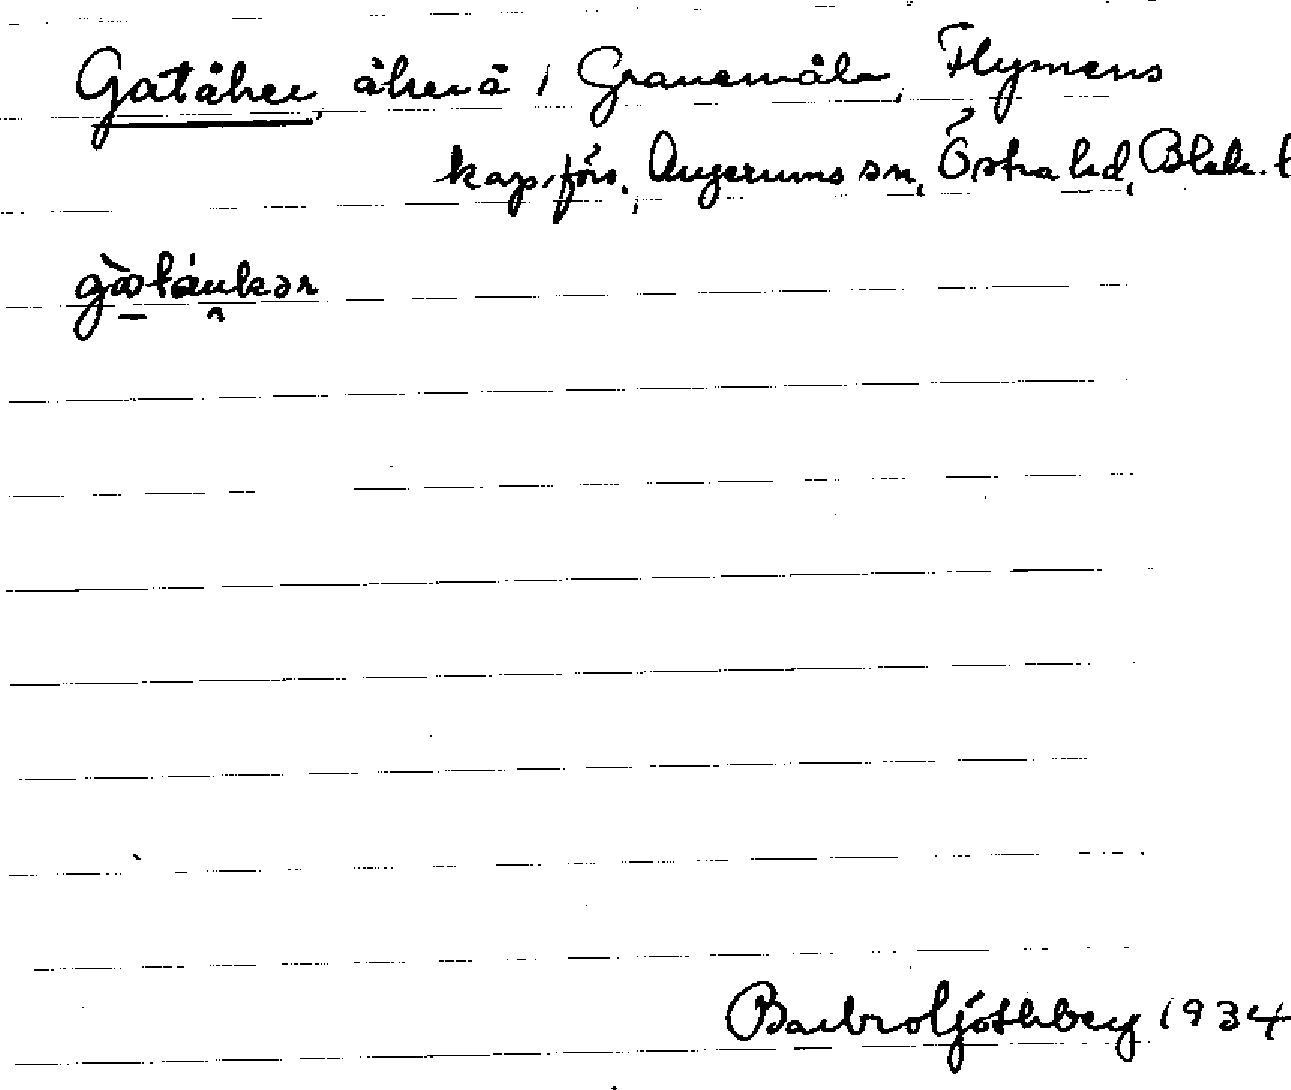 Gatåker, åkrar i Granemåla, Flymens
kap.förs., Augerums sn, Östra hd, Blek. l
gatåukər
Barbro Götlberg 1934